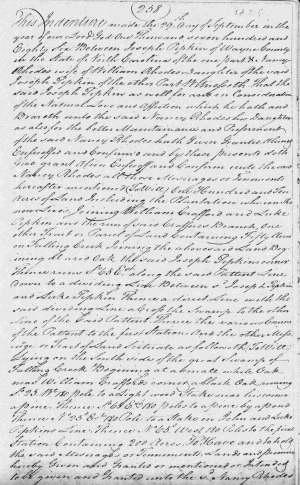 (258)
This Indenture made the 29th day of September in the
year of our Lord God One Thousand and seven hundred and
Eighty Six Between Joseph Pipkin of Wayne County
in the State of North Carolina of the one part & Nancy
Rhodes wife of William Rhodes Daughter of the said
Joseph Pipkin of the other Part Witnesseth that the
said Joseph Pipkin as well for and in Consideration
of the Natural Love and Affection which he hath and
Beareth unto the said Nancy Rhodes his Daughter
as also for the better Maintainance and Preferment
of the said Nancy Rhodes hath Given Granted Aliened
Enfeoffed and Confirmed and by these Presents doth
Give grant Alien Enfeoff and Confirm unto the said
Nancy Rhodes all those Messuages or Tenements
hereafter mentioned (to Wit) One Hundred and Ten
Acres of Land Including the Plantation whereon she
now Lives, Joining William Crafford and Luke
Pipkin and the run of said Crafford Branch, One
other Tract or Parcel of Land Containing
on Falling Creek Joining the aforesaid Land Beg-
ining at a red Oak the said Joseph Pipkins corner
Thence runs along the said Pattent Line
down to a dividing Line Between sd. Joseph Pipkin
and Luke Pipkin Thence a direct Line with the
said dividing Line a Cross the Swamp to the other
line of the said Pattent Thence the various Courses
of the Pattent to the first Station. And the other Messu-
age or Tract of Land Situate as follows (to Wit)
Lying on the South side of the great Swamp of
Falling Creek Begining at a small white Oak
near William Craffords corner a Black Oak, running
pole to a light wood Stake near his corner
a pine Thence pole to a pine by a pond
Thence Pole to a Stake in John and Luke
Pipkins Line Thence Pole to the first
Station Containing 200 Acres To Have and to hold
the said Messuages or Tenements, Lands and premises
hereby Given and Granted or mentioned or Intended
to be given and Granted unto the sd. Nancy Rhodes